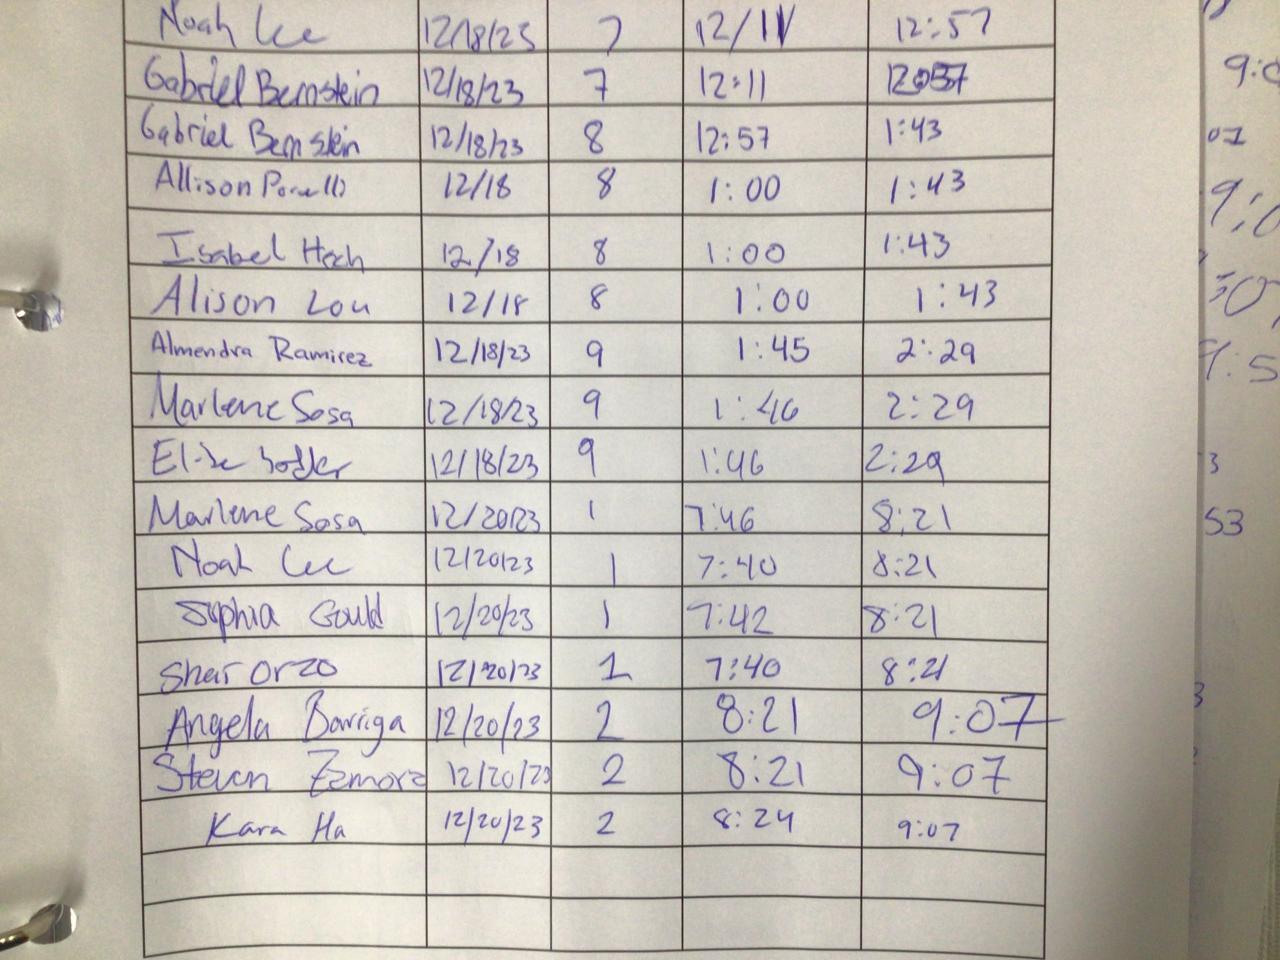 Noah Lee 12/18/23 7 12/11 12:57
Gabriel Bernstein 12/18/23 7 12:11 12:57
Gabriel Bernstein 12/18/23 8 12:57 1:43
Allison 12/18 8 1:00 1:43
Isabel Hoch 12/18 8 1:00 1:43
Alison Lou 12/18 8 1:00 1:43
Almendra Ramirez 12/18/23 9 1:45 2:29
Marlene Sosa 12/18/23 9 1:46 2:29
12/18/23 9 1:46 2:29
Marlene Sosa 12/20/23 1 7:46 8:21
Noah Lee 12/20/23 1 7:40 8:21
Sophia Gould 12/20/23 1 7:42 8:21
Shar Orzo 12/20/23 1 7:40 8:21
Angela Barriga 12/20/23 2 8:21 9:07
Steven Zamora 12/20/23 2 8:21 9:07
Kara Ha 12/20/23 2 8:24 9:07
07
53